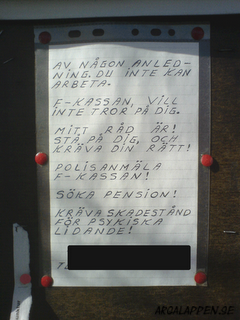 AV NÅGON ANLED-
NING. DU INTE KAN
ARBETA.
F-KASSAN, VILL
INTE TROR PÅ DIG.
MITT RÅD ÄR!
STÅ PÅ DIG, OCH
KRÄVA DIN RÄTT!
POLISANMÄLA
F-KASSAN!
SÖKA PENSION!
KRÄVA SKADESTÅND
FÖR PSYKISKA
LIDANDE!
T.
ARGALAPPEN.SE